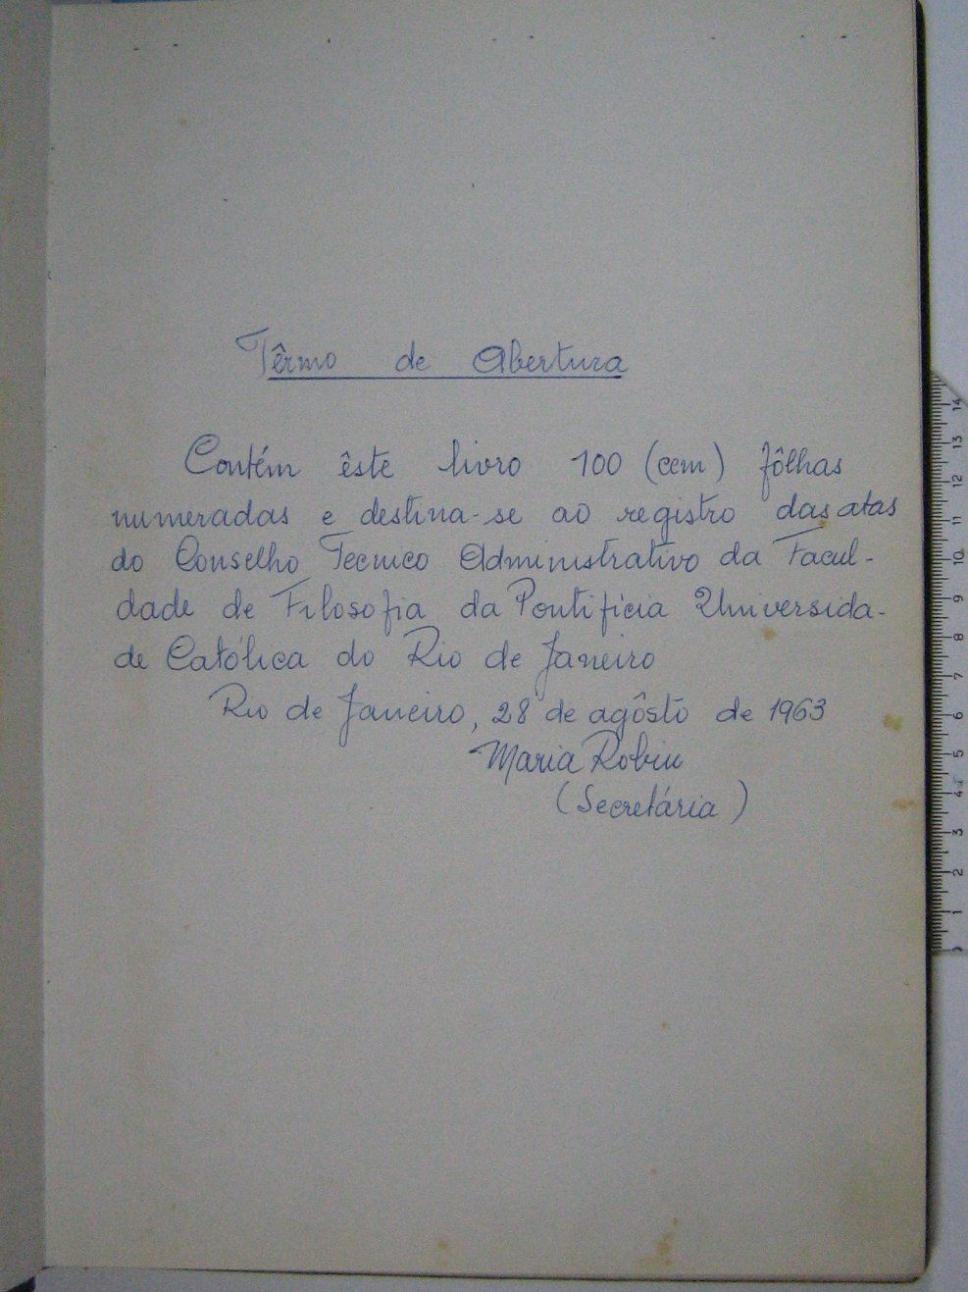 Têrmo de Abertura
Contém êste livro 100 (cem) fôlhas
numeradas e destina-se ao registro das atas
do Conselho Tecnico Administrativo da Facul-
dade de Filosofia da Pontifícia Universida-
de Católica do Rio de Janeiro
Rio de Janeiro, 28 de agôsto de 1963
Maria Robin
(Secretária)
14
13
12
11
10
9
8
7
6
5
4
3
2
1